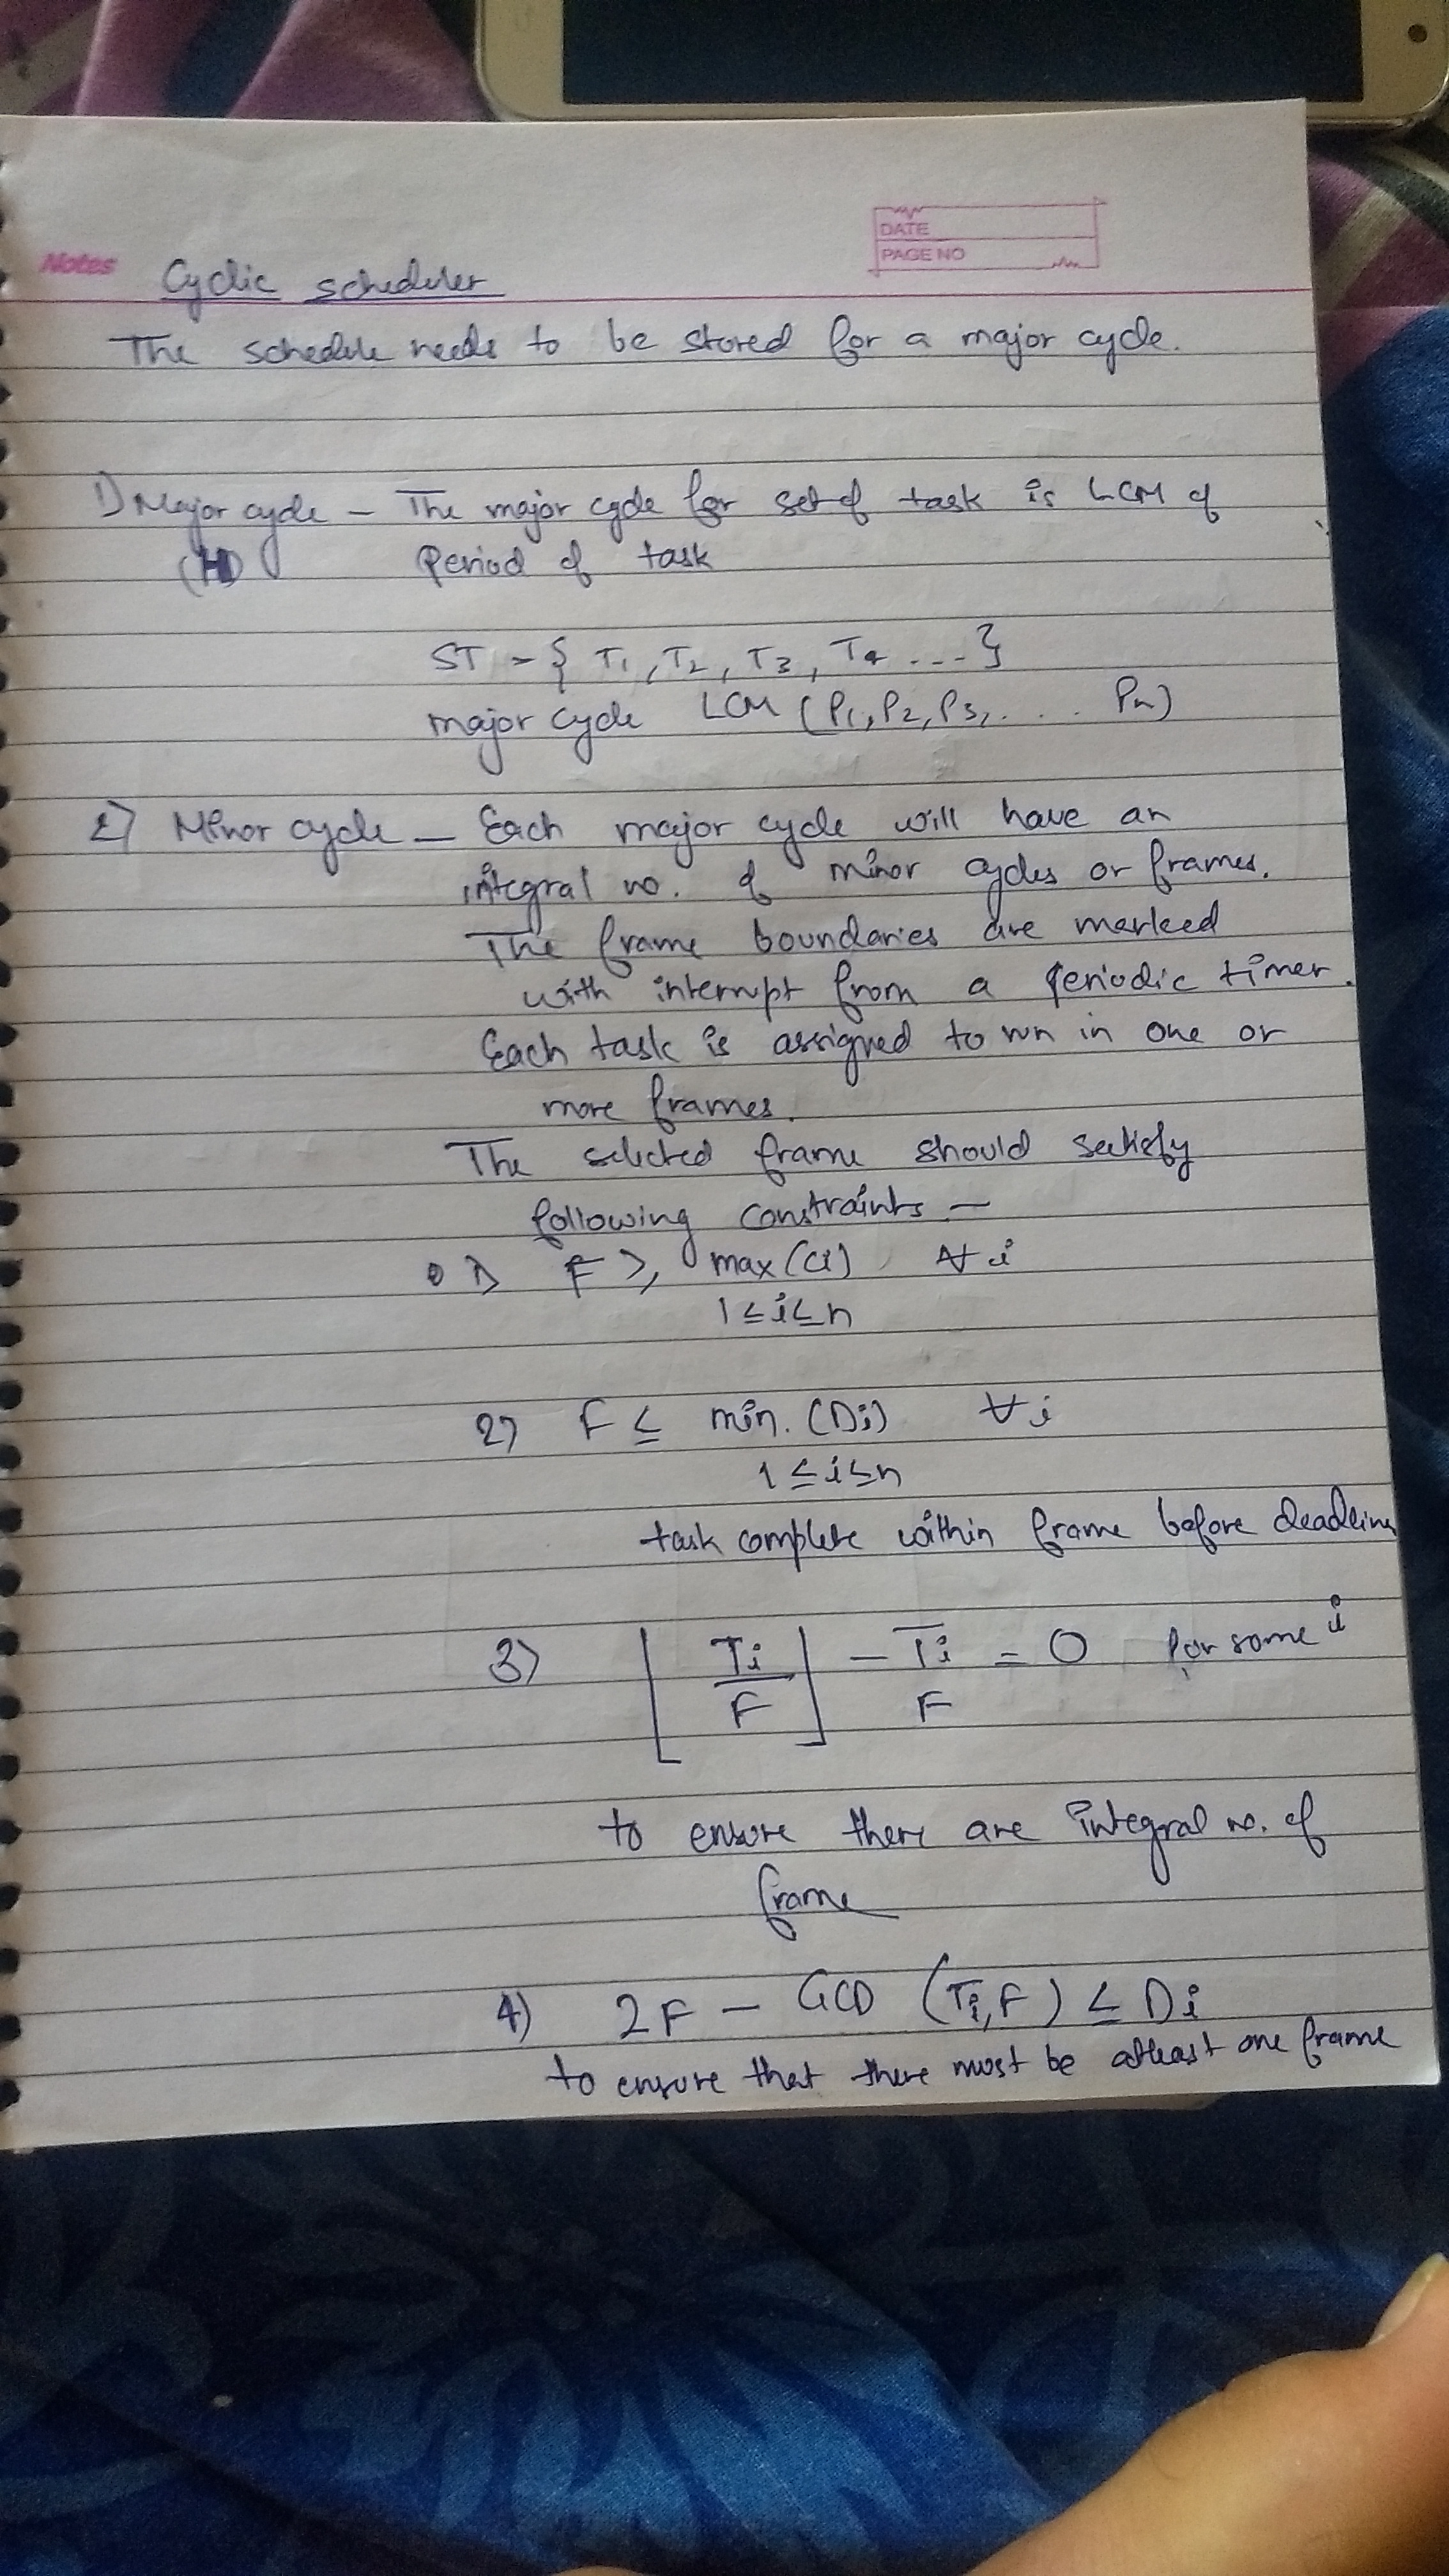 DATE
PAGE NO
Notes
Cyclic scheduler
The schedule needs to be stored for a major cycle.
1) Major cycle – The major cycle for set of task is LCM of
(H) Period of task
ST = { T1, T2, T3, T4 ... }
major cycle LCM (P1, P2, P3, .... Pn)
2) Minor cycle – Each major cycle will have an
integral no. of minor cycles or frames.
The frame boundaries are marked
with interrupt from a periodic timer.
Each task is assigned to run in one or
more frames.
The selected frame should satisfy
following constraints –
1) F ≥ max (Ci) ∀ i
1 ≤ i ≤ n
2) F ≤ min. (Di) ∀ i
1 ≤ i ≤ n
task complete within frame before deadline
3) ⌊Ti/F⌋ – Ti/F = 0 for some i
to ensure there are integral no. of
frame
4) 2F – GCD (Ti, F) ≤ Di
to ensure that there must be atleast one frame